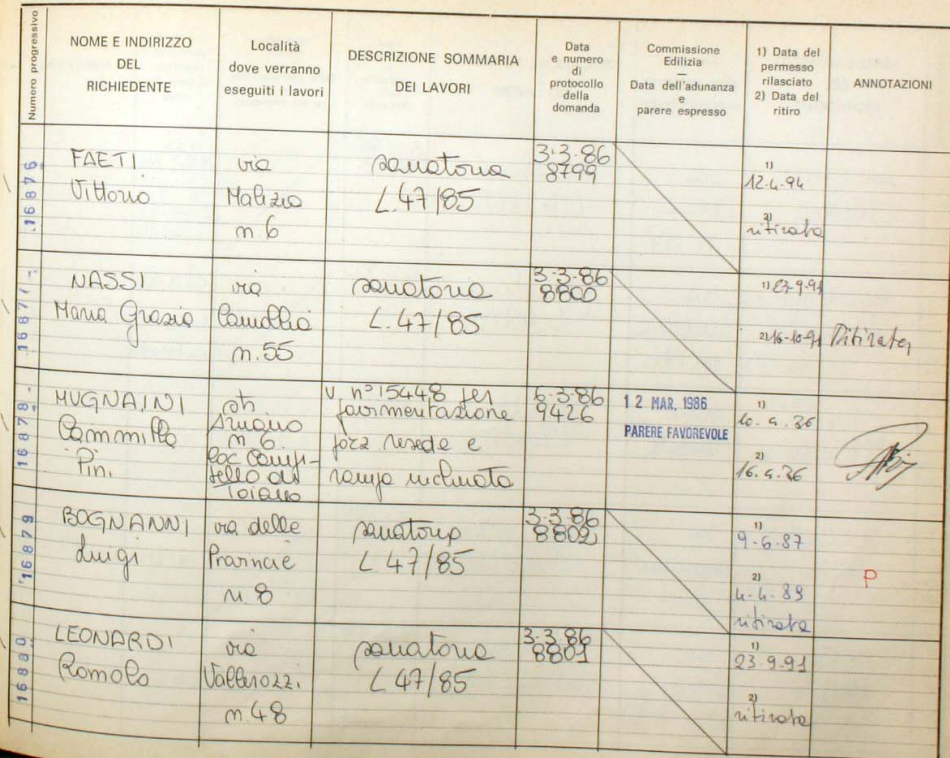 Numero progressivo
NOME E INDIRIZZO
DEL
RICHIEDENTE
Località
dove verranno
eseguiti i lavori
DESCRIZIONE SOMMARIA
DEI LAVORI
Data
e numero
di
protocollo
della
domanda
Commissione
Edilizia
—
Data dell'adunanza
e
parere espresso
1) Data del
permesso
rilasciato
2) Data del
ritiro
ANNOTAZIONI
16876
FAETI
Vittorio
via
Malizia
n 6
sanatoria
L.47/85
3.3.86
8799
1)
12.4.94
2)
ritirata
16877
NASSI
Maria Grazia
via
Camollia
n.55
sanatoria
L.47/85
3-3-86
8800
1) 23-9-91
2) 16-10-91
Ritirata
16878
MUGNAINI
Cammilla
Pin.
n 6.
loc
V. n° 15448 per
pavimentazione
resede e
rampa inclinata
6-3-86
9426
12 MAR. 1986
PARERE FAVOREVOLE
1)
10.4.86
2)
16.4.86
16879
BOGNANNI
Luigi
via delle
Provincie
n. 8
sanatoria
L 47/85
3-3-86
8802
1)
9-6-87
2)
4-4-89
ritirata
P
16880
LEONARDI
Romolo
via
Vallerozzi
n.48
sanatoria
L 47/85
3-3-86
8801
1)
23.9.91
2)
ritirata